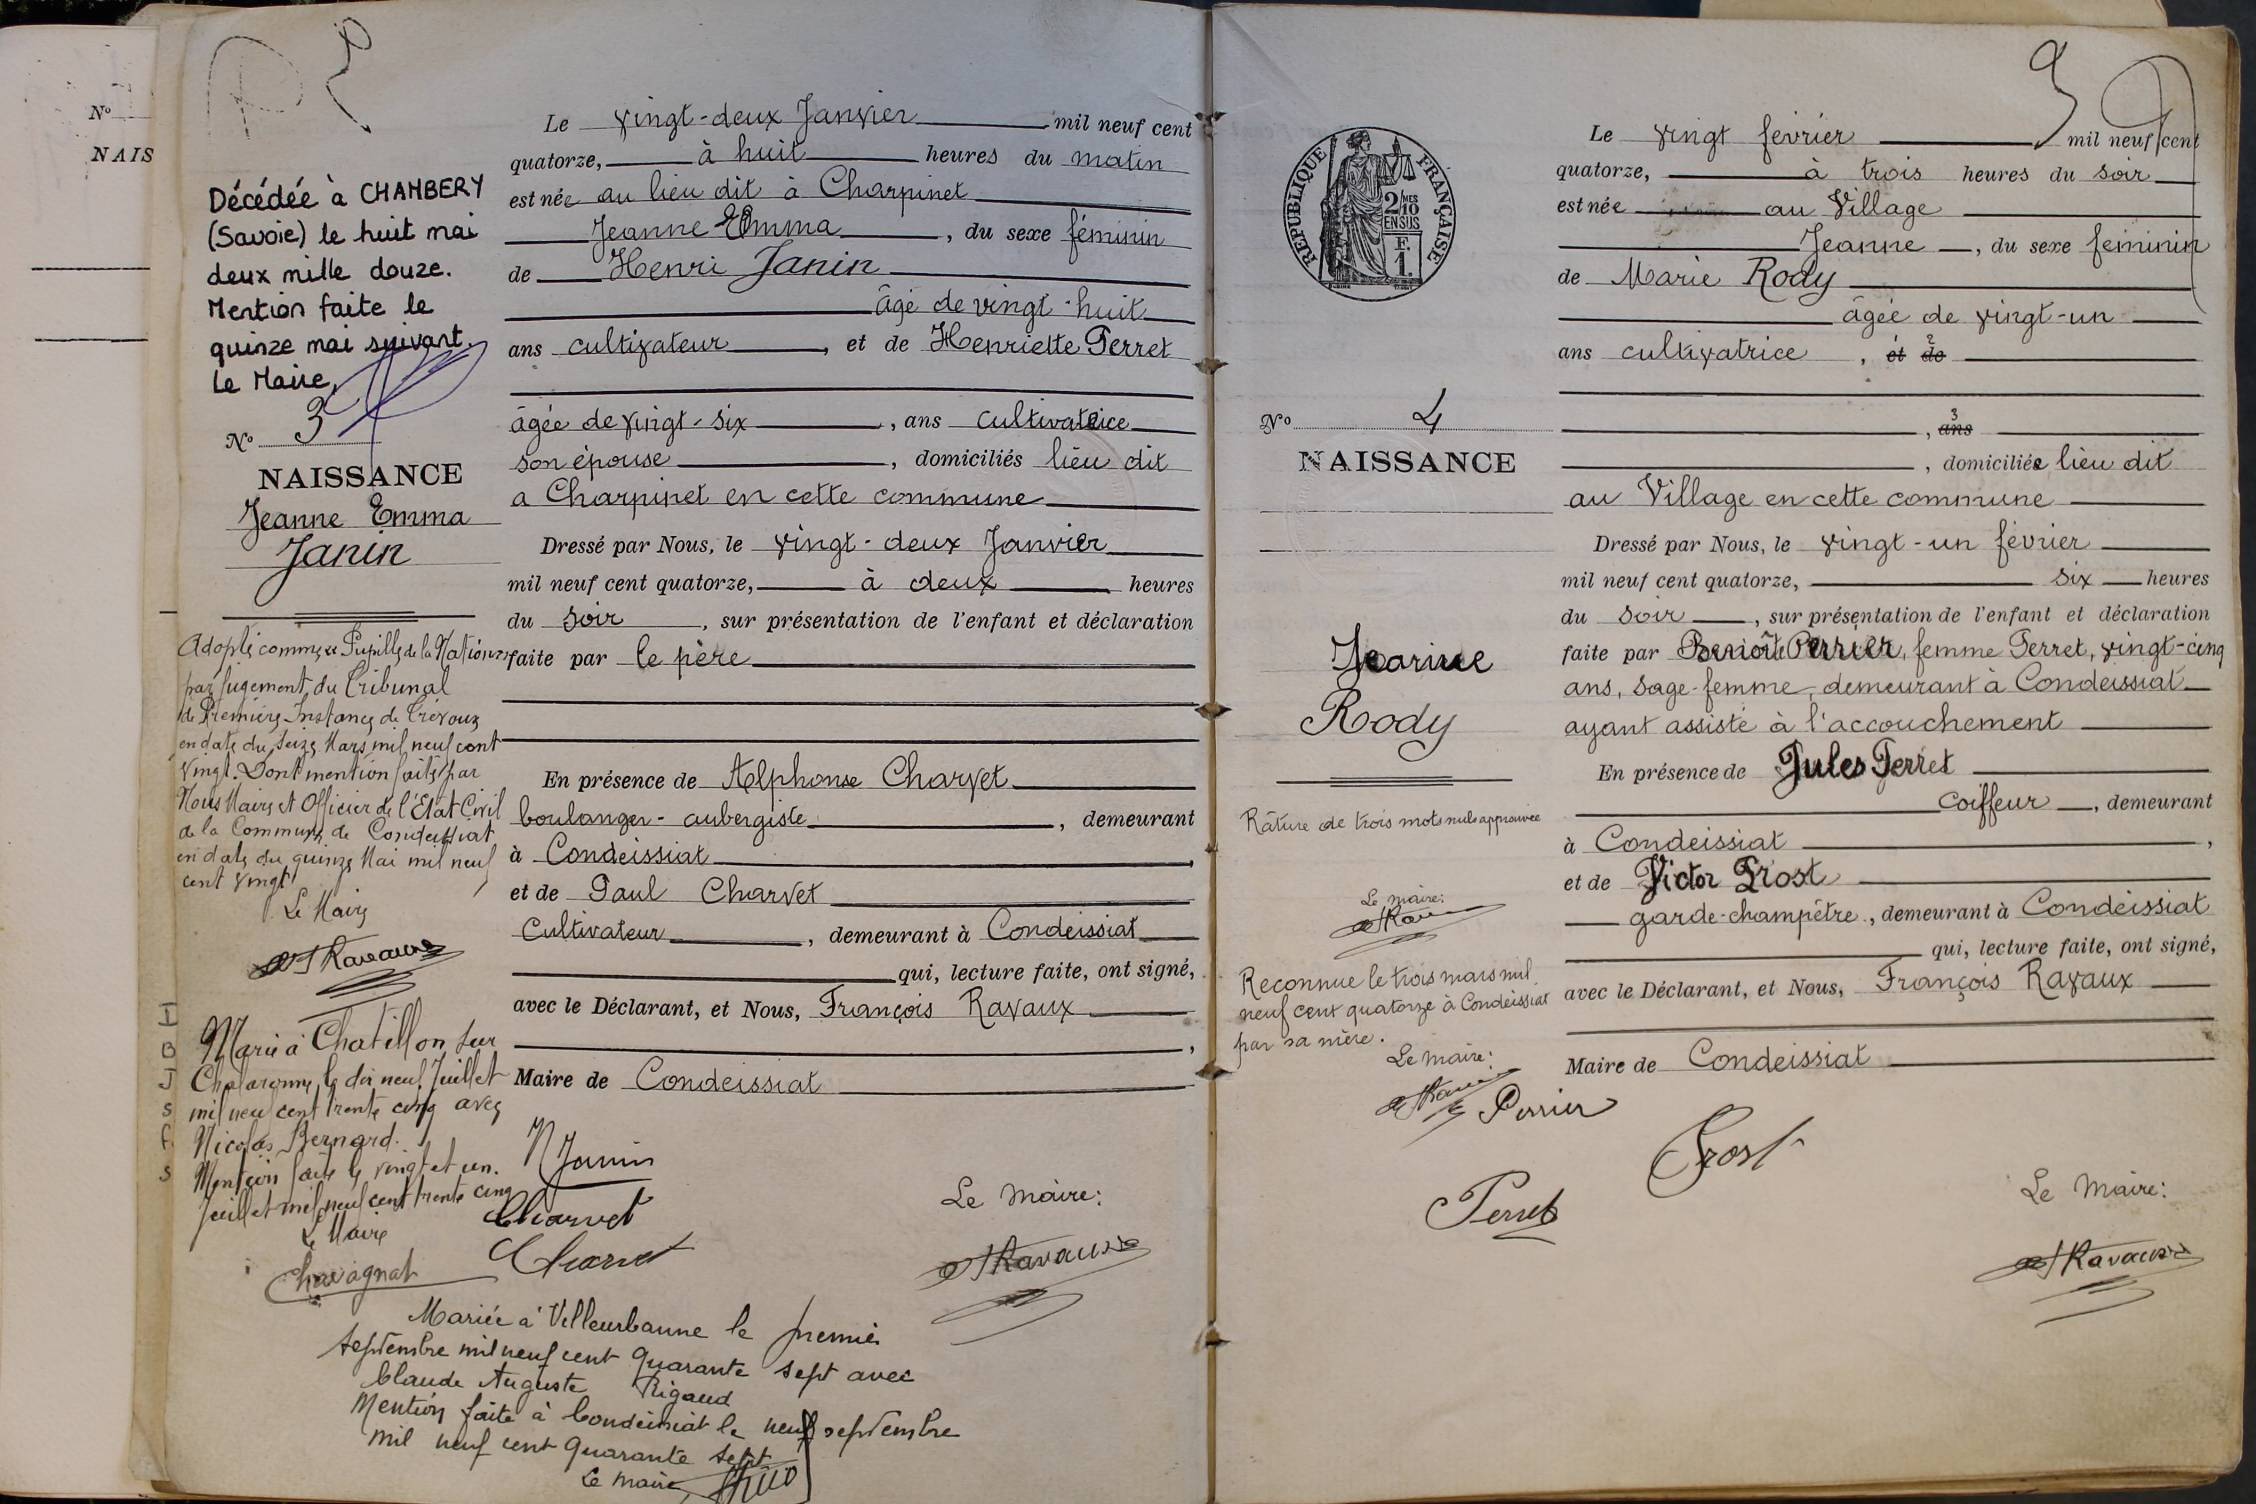 No
NAIS
Décédée à CHAMBERY
(Savoie) le huit mai
deux mille douze.
Mention faite le
quinze mai suivant.
Le Maire,
No 3
NAISSANCE
Jeanne Emma
Janin
Adoptée comme Pupille de la Nation
par jugement du Tribunal
de Première Instance de Trévoux
en date du seize Mars mil neuf cent
vingt. Dont mention faite par
Nous Maire et Officier de l'Etat Civil
de la Commune de Condeissiat
en date du quinze Mai mil neuf
cent vingt
Le Maire
Ravaux
Mariée à Chatillon sur
Chalaronne le dix neuf Juillet
mil neuf cent trente cinq avec
Nicolas Bernard.
Mention faite le vingt et un
Juillet mil neuf cent trente cinq
Le Maire
Chavagnat
Le vingt-deux Janvier mil neuf cent
quatorze, à huit heures du matin
est née au lieu dit à Charpinet
Jeanne Emma, du sexe féminin
de Henri Janin
âgé de vingt-huit
ans cultivateur, et de Henriette Perret
âgée de vingt-six, ans cultivatrice
son épouse, domiciliés lieu dit
a Charpinet en cette commune
Dressé par Nous, le vingt-deux Janvier
mil neuf cent quatorze, à deux heures
du soir, sur présentation de l'enfant et déclaration
faite par le père
En présence de Alphonse Charvet
boulanger-aubergiste, demeurant
à Condeissiat,
et de Paul Charvet
Cultivateur, demeurant à Condeissiat
qui, lecture faite, ont signé,
avec le Déclarant, et Nous, François Ravaux
,
Maire de Condeissiat
H Janin
Charvet
Charvet
Le Maire:
Ravaux
Mariée à Villeurbanne le premier
septembre mil neuf cent quarante sept avec
Claude Auguste Rigaud
Mention faite à Condeissiat le neuf septembre
mil neuf cent quarante sept
Le maire,
9
REPUBLIQUE FRANÇAISE
2/10 MES
EN SUS
F.
1.
No 4
NAISSANCE
Jeanne
Rody
Râture de trois mots nuls approuvée
Le maire:
Reconnue le trois mars mil
neuf cent quatorze à Condeissiat
par sa mère.
Le maire:
Le vingt février mil neuf cent
quatorze, à trois heures du soir
est née au Village
Jeanne, du sexe féminin
de Marie Rody
âgée de vingt-un
ans cultivatrice, et de
, ans
, domiciliée lieu dit
au Village en cette commune
Dressé par Nous, le vingt-un février
mil neuf cent quatorze, six heures
du soir, sur présentation de l'enfant et déclaration
faite par Benoîte Perrier, femme Perret, vingt-cinq
ans, sage-femme, demeurant à Condeissiat
ayant assisté à l'accouchement
En présence de Jules Perret
Coiffeur, demeurant
à Condeissiat,
et de Victor Prost
garde-champêtre, demeurant à Condeissiat
qui, lecture faite, ont signé,
avec le Déclarant, et Nous, François Ravaux
Maire de Condeissiat
Perrier
Prost
Perret
Le Maire:
Ravaux